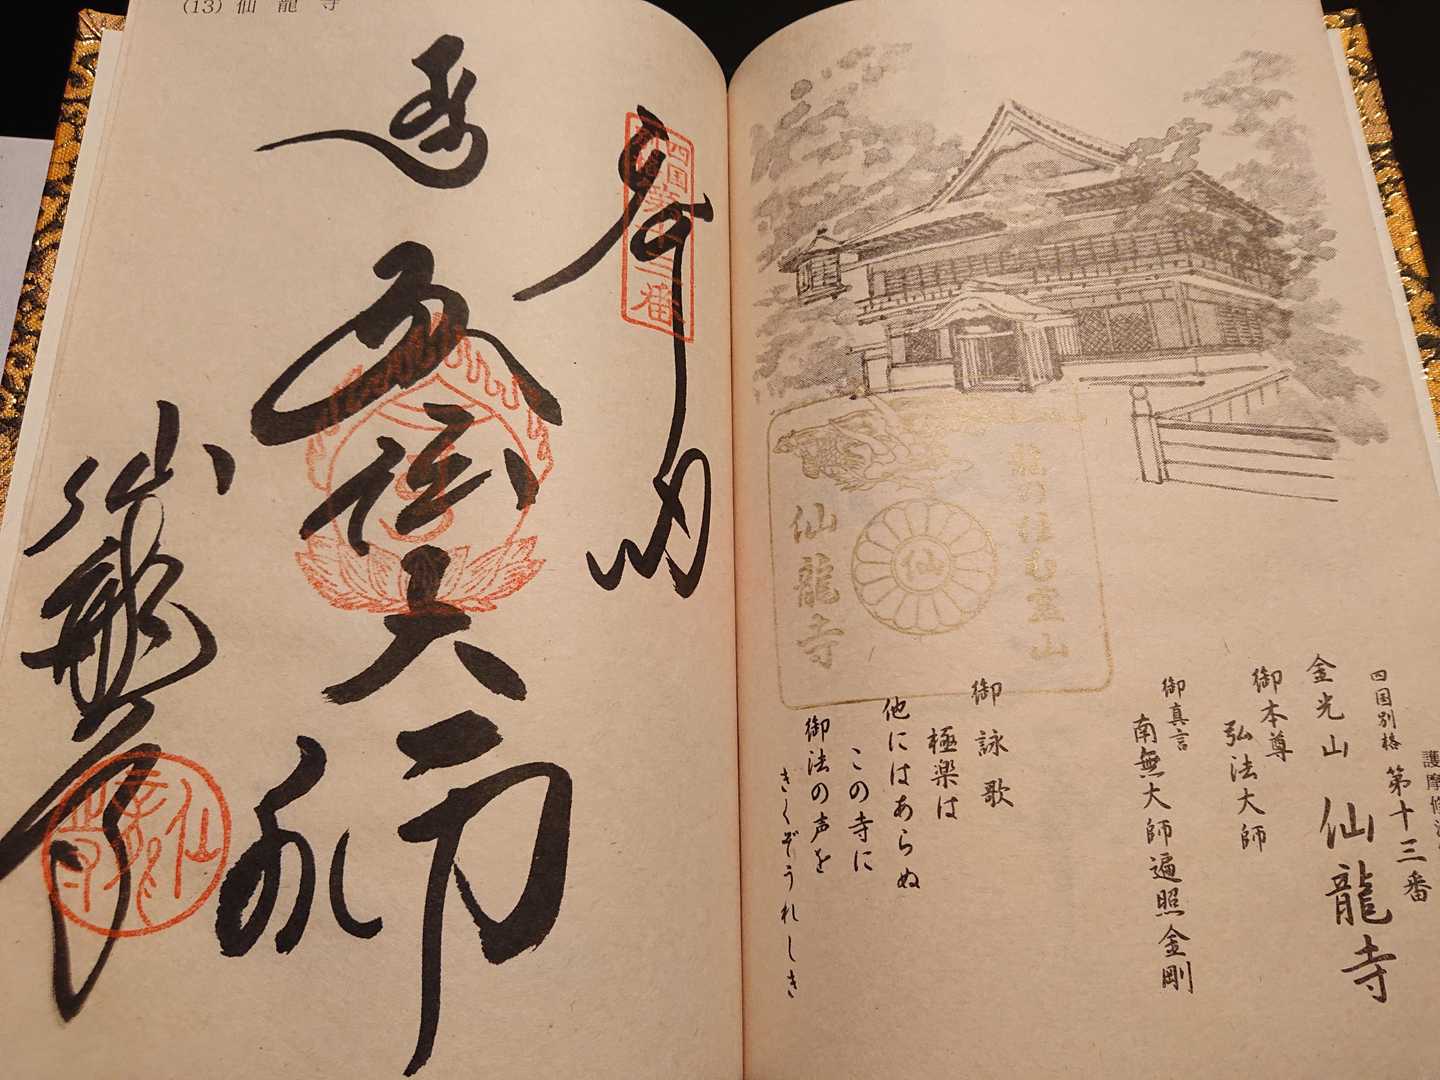 護摩修
四国別格 第十三番
金光山 仙龍寺
御本尊
弘法大師
御真言
南無大師遍照金剛
御詠歌
極楽は
他にはあらぬ
この寺に
御法の声を
きくぞうれしき
龍の住む霊山
仙
仙龍寺
(13) 仙龍寺
奉納
四国別格第十三番
大師
仙龍寺
仙龍寺